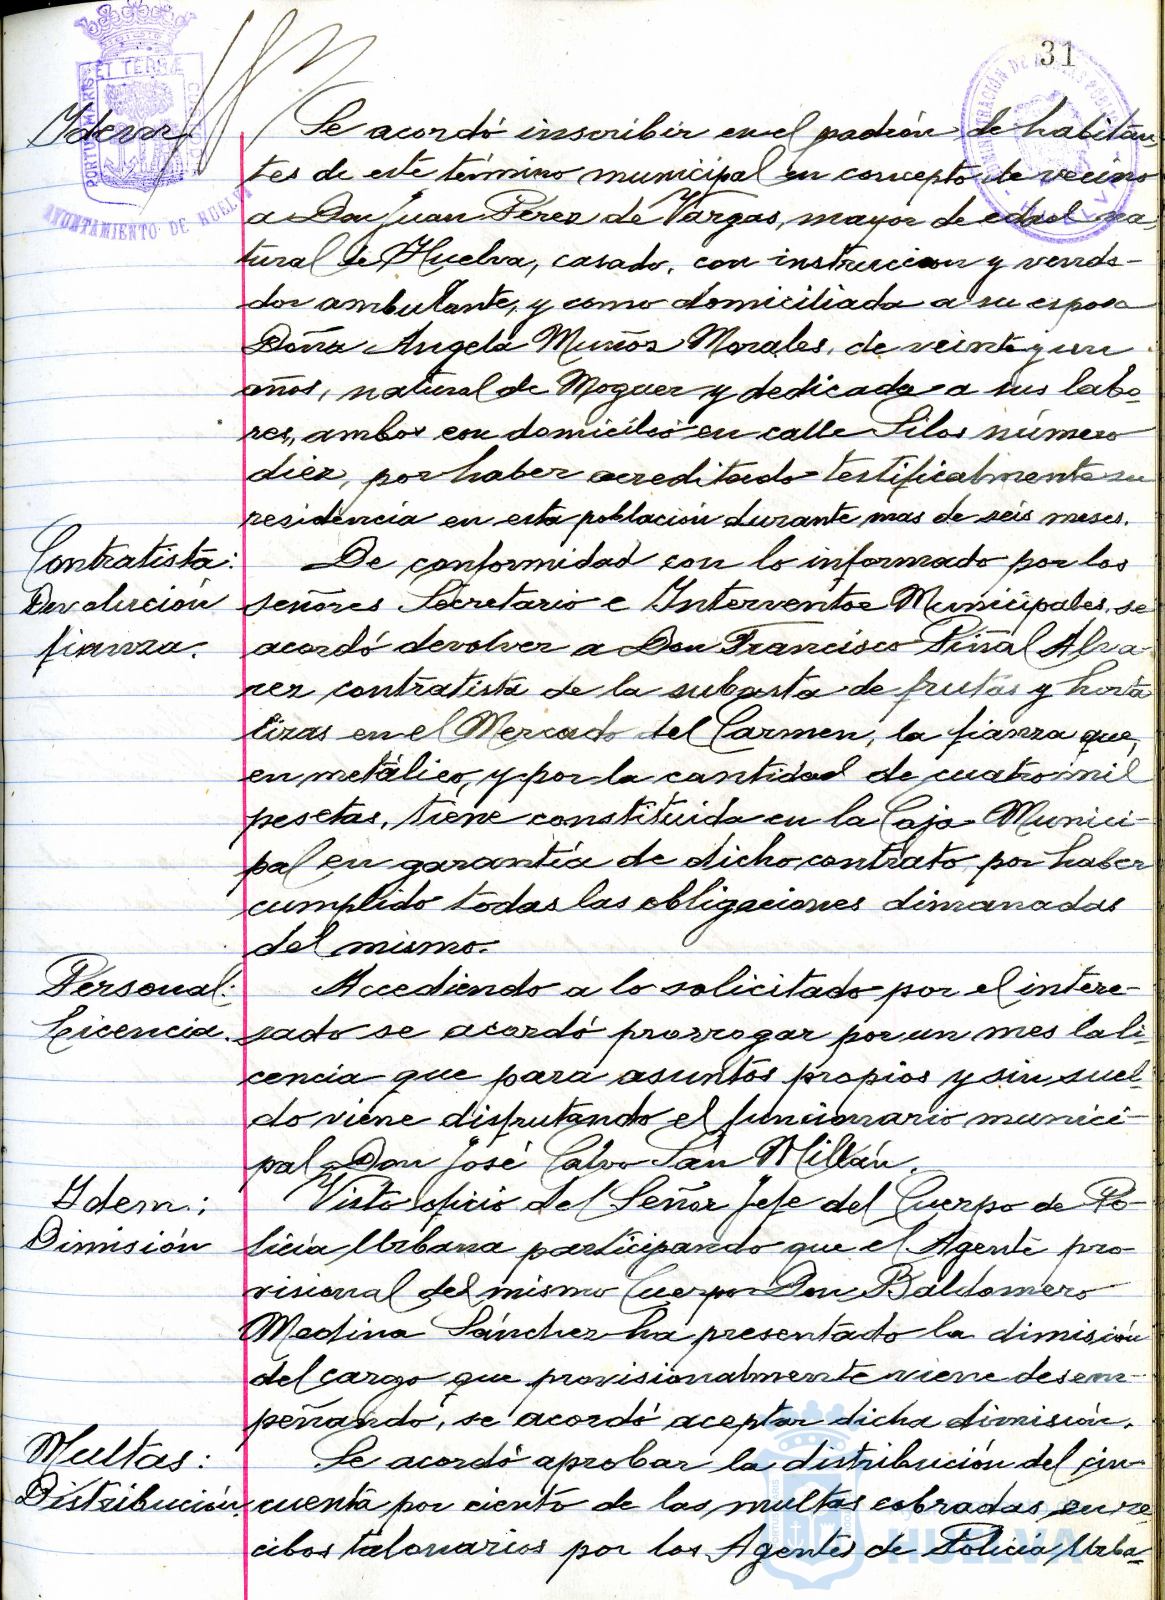 31
PORTUS MARIS ET TERRÆ CUSTODIA
AYUNTAMIENTO DE HUELVA
Idem
Se acordó inscribir en el padrón de habitan-
tes de este término municipal en concepto de vecino
a Don Juan Pérez de Vargas, mayor de edad na-
tural de Huelva, casado, con instruccion y vende-
dor ambulante, y como domiciliada a su esposa
Doña Angela Muñoz Morales, de veinte y un
años, natural de Moguer y dedicada a sus labo-
res, ambos con domicilio en calle Silos número
diez, por haber acreditado testificalmente su
residencia en esta población durante mas de seis meses.
Contratista:
Devolución
fianza.
De conformidad con lo informado por los
señores Secretario e Interventor Municipales, se
acordó devolver a Don Francisco Piñal Alva-
rez contratista de la subasta de frutas y horta
lizas en el Mercado del Carmen, la fianza que,
en metálico, y por la cantidad de cuatro mil
pesetas, tiene constituida en la Caja Munici-
pal en garantía de dicho contrato por haber
cumplido todas las obligaciones dimanadas
del mismo.
Personal:
Licencia.
Accediendo a lo solicitado por el intere-
sado se acordó prorrogar por un mes la li-
cencia que para asuntos propios y sin suel-
do viene disfrutando el funcionario munici-
pal Don José Calvo San Millán.
Idem:
Dimisión
Visto oficio del Señor Jefe del Cuerpo de Po-
licía Urbana participando que el Agente pro-
visional del mismo Cuerpo Don Baldomero
Medina Sánchez ha presentado la dimisión
del cargo que provisionalmente viene desem-
peñando, se acordó aceptar dicha dimisión.
Multas:
Distribución.
Se acordó aprobar la distribución del cin-
cuenta por ciento de las multas cobradas en re-
cibos talonarios por los Agentes de Policía Urba-
HUELVA